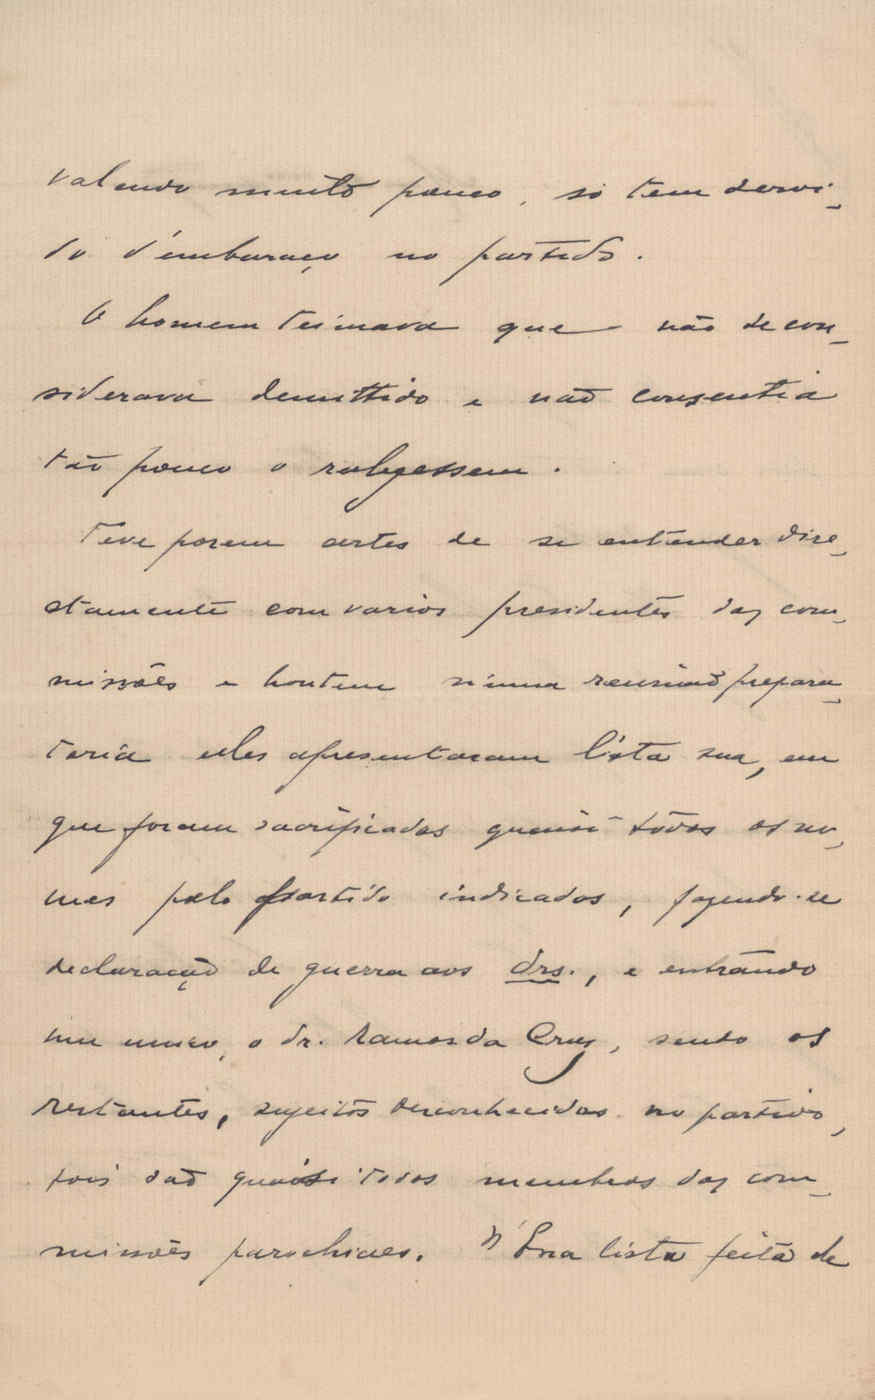 valendo muito pouco, só tem servi-
do d'embaraço no partido.
O homem teimava que não se con-
siderava demittido e não consentia
tão pouco o
Teve porem artes de se entender dire-
ctamente com varios presidentes das com-
missões e hontem n'uma reunião prepara-
toria eles apresentaram lista sua, em
que foram sacrificados quasi todos os no-
mes pelo partido indicados, fazendo-se
declaração de guerra aos drs., e entrando
um unico, o dr. Ramos da Cruz, sendo os
restantes, sujeitos desconhecidos no partido,
pois são quasi todos membros das com-
missões parochiaes. lista feita de